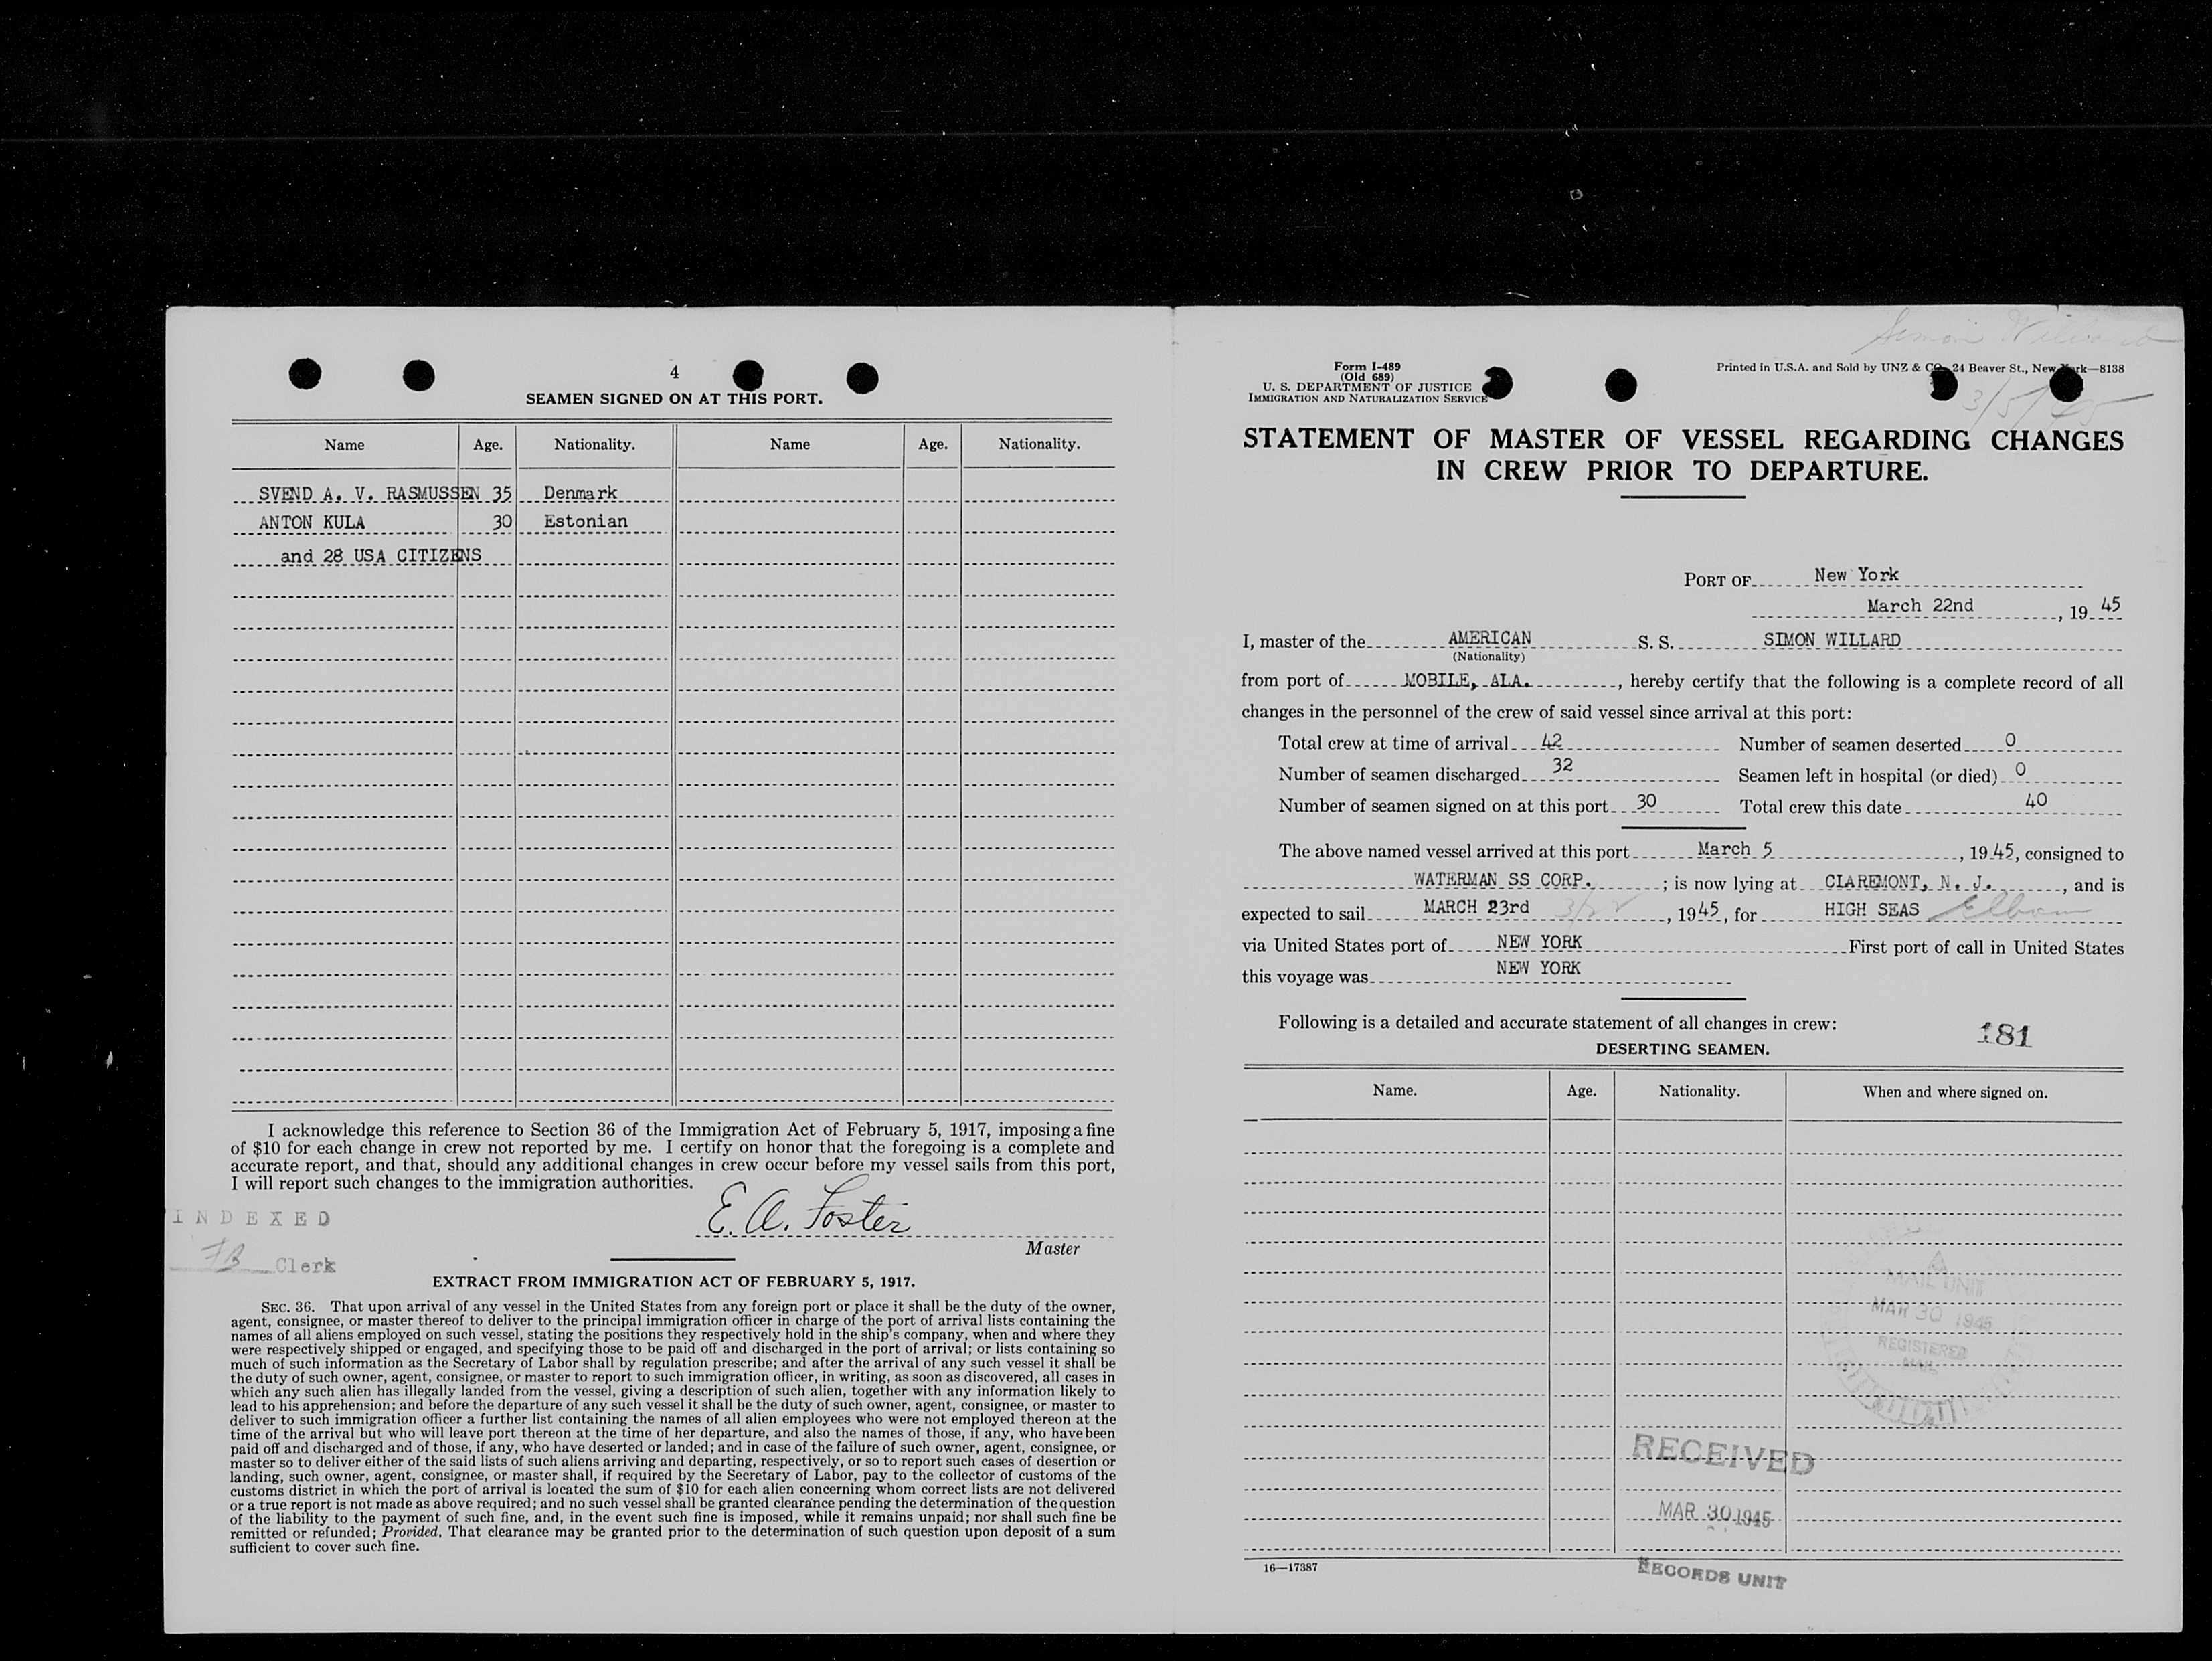 4
SEAMEN SIGNED ON AT THIS PORT.
Name Age. Nationality. Name Age. Nationality.
SVEND A. V. RASMUSSEN 35 Denmark
ANTON KULA 30 Estonian
and 28 USA CITIZENS
I acknowledge this reference to Section 36 of the Immigration Act of February 5, 1917, imposing a fine
of $10 for each change in crew not reported by me. I certify on honor that the foregoing is a complete and
accurate report, and that, should any additional changes in crew occur before my vessel sails from this port,
I will report such changes to the immigration authorities.
E. A. Foster
Master
INDEXED
FB Clerk
EXTRACT FROM IMMIGRATION ACT OF FEBRUARY 5, 1917.
SEC. 36. That upon arrival of any vessel in the United States from any foreign port or place it shall be the duty of the owner,
agent, consignee, or master thereof to deliver to the principal immigration officer in charge of the port of arrival lists containing the
names of all aliens employed on such vessel, stating the positions they respectively hold in the ship's company, when and where they
were respectively shipped or engaged, and specifying those to be paid off and discharged in the port of arrival; or lists containing so
much of such information as the Secretary of Labor shall by regulation prescribe; and after the arrival of any such vessel it shall be
the duty of such owner, agent, consignee, or master to report to such immigration officer, in writing, as soon as discovered, all cases in
which any such alien has illegally landed from the vessel, giving a description of such alien, together with any information likely to
lead to his apprehension; and before the departure of any such vessel it shall be the duty of such owner, agent, consignee, or master to
deliver to such immigration officer a further list containing the names of all alien employees who were not employed thereon at the
time of the arrival but who will leave port thereon at the time of her departure, and also the names of those, if any, who have been
paid off and discharged and of those, if any, who have deserted or landed; and in case of the failure of such owner, agent, consignee, or
master so to deliver either of the said lists of such aliens arriving and departing, respectively, or so to report such cases of desertion or
landing, such owner, agent, consignee, or master shall, if required by the Secretary of Labor, pay to the collector of customs of the
customs district in which the port of arrival is located the sum of $10 for each alien concerning whom correct lists are not delivered
or a true report is not made as above required; and no such vessel shall be granted clearance pending the determination of the question
of the liability to the payment of such fine, and, in the event such fine is imposed, while it remains unpaid; nor shall such fine be
remitted or refunded; Provided, That clearance may be granted prior to the determination of such question upon deposit of a sum
sufficient to cover such fine.
Simon Willard
3/5/45
Form I-489
(Old 689)
U. S. DEPARTMENT OF JUSTICE
IMMIGRATION AND NATURALIZATION SERVICE
Printed in U.S.A. and Sold by UNZ & CO. 24 Beaver St., New York—8138
STATEMENT OF MASTER OF VESSEL REGARDING CHANGES
IN CREW PRIOR TO DEPARTURE.
PORT OF New York
March 22nd, 19 45
I, master of the AMERICAN S. S. SIMON WILLARD
(Nationality)
from port of MOBILE, ALA., hereby certify that the following is a complete record of all
changes in the personnel of the crew of said vessel since arrival at this port:
Total crew at time of arrival 42 Number of seamen deserted 0
Number of seamen discharged 32 Seamen left in hospital (or died) 0
Number of seamen signed on at this port 30 Total crew this date 40
The above named vessel arrived at this port March 5, 1945, consigned to
WATERMAN SS CORP.; is now lying at CLAREMONT, N. J., and is
expected to sail MARCH 23rd 3/22, 1945, for HIGH SEAS
via United States port of NEW YORK First port of call in United States
this voyage was NEW YORK
Following is a detailed and accurate statement of all changes in crew:
181
DESERTING SEAMEN.
Name. Age. Nationality. When and where signed on.
MAIL UNIT
MAR 30 1945
REGISTERED
MAIL
RECEIVED
MAR 30 1945
RECORDS UNIT
16—17387